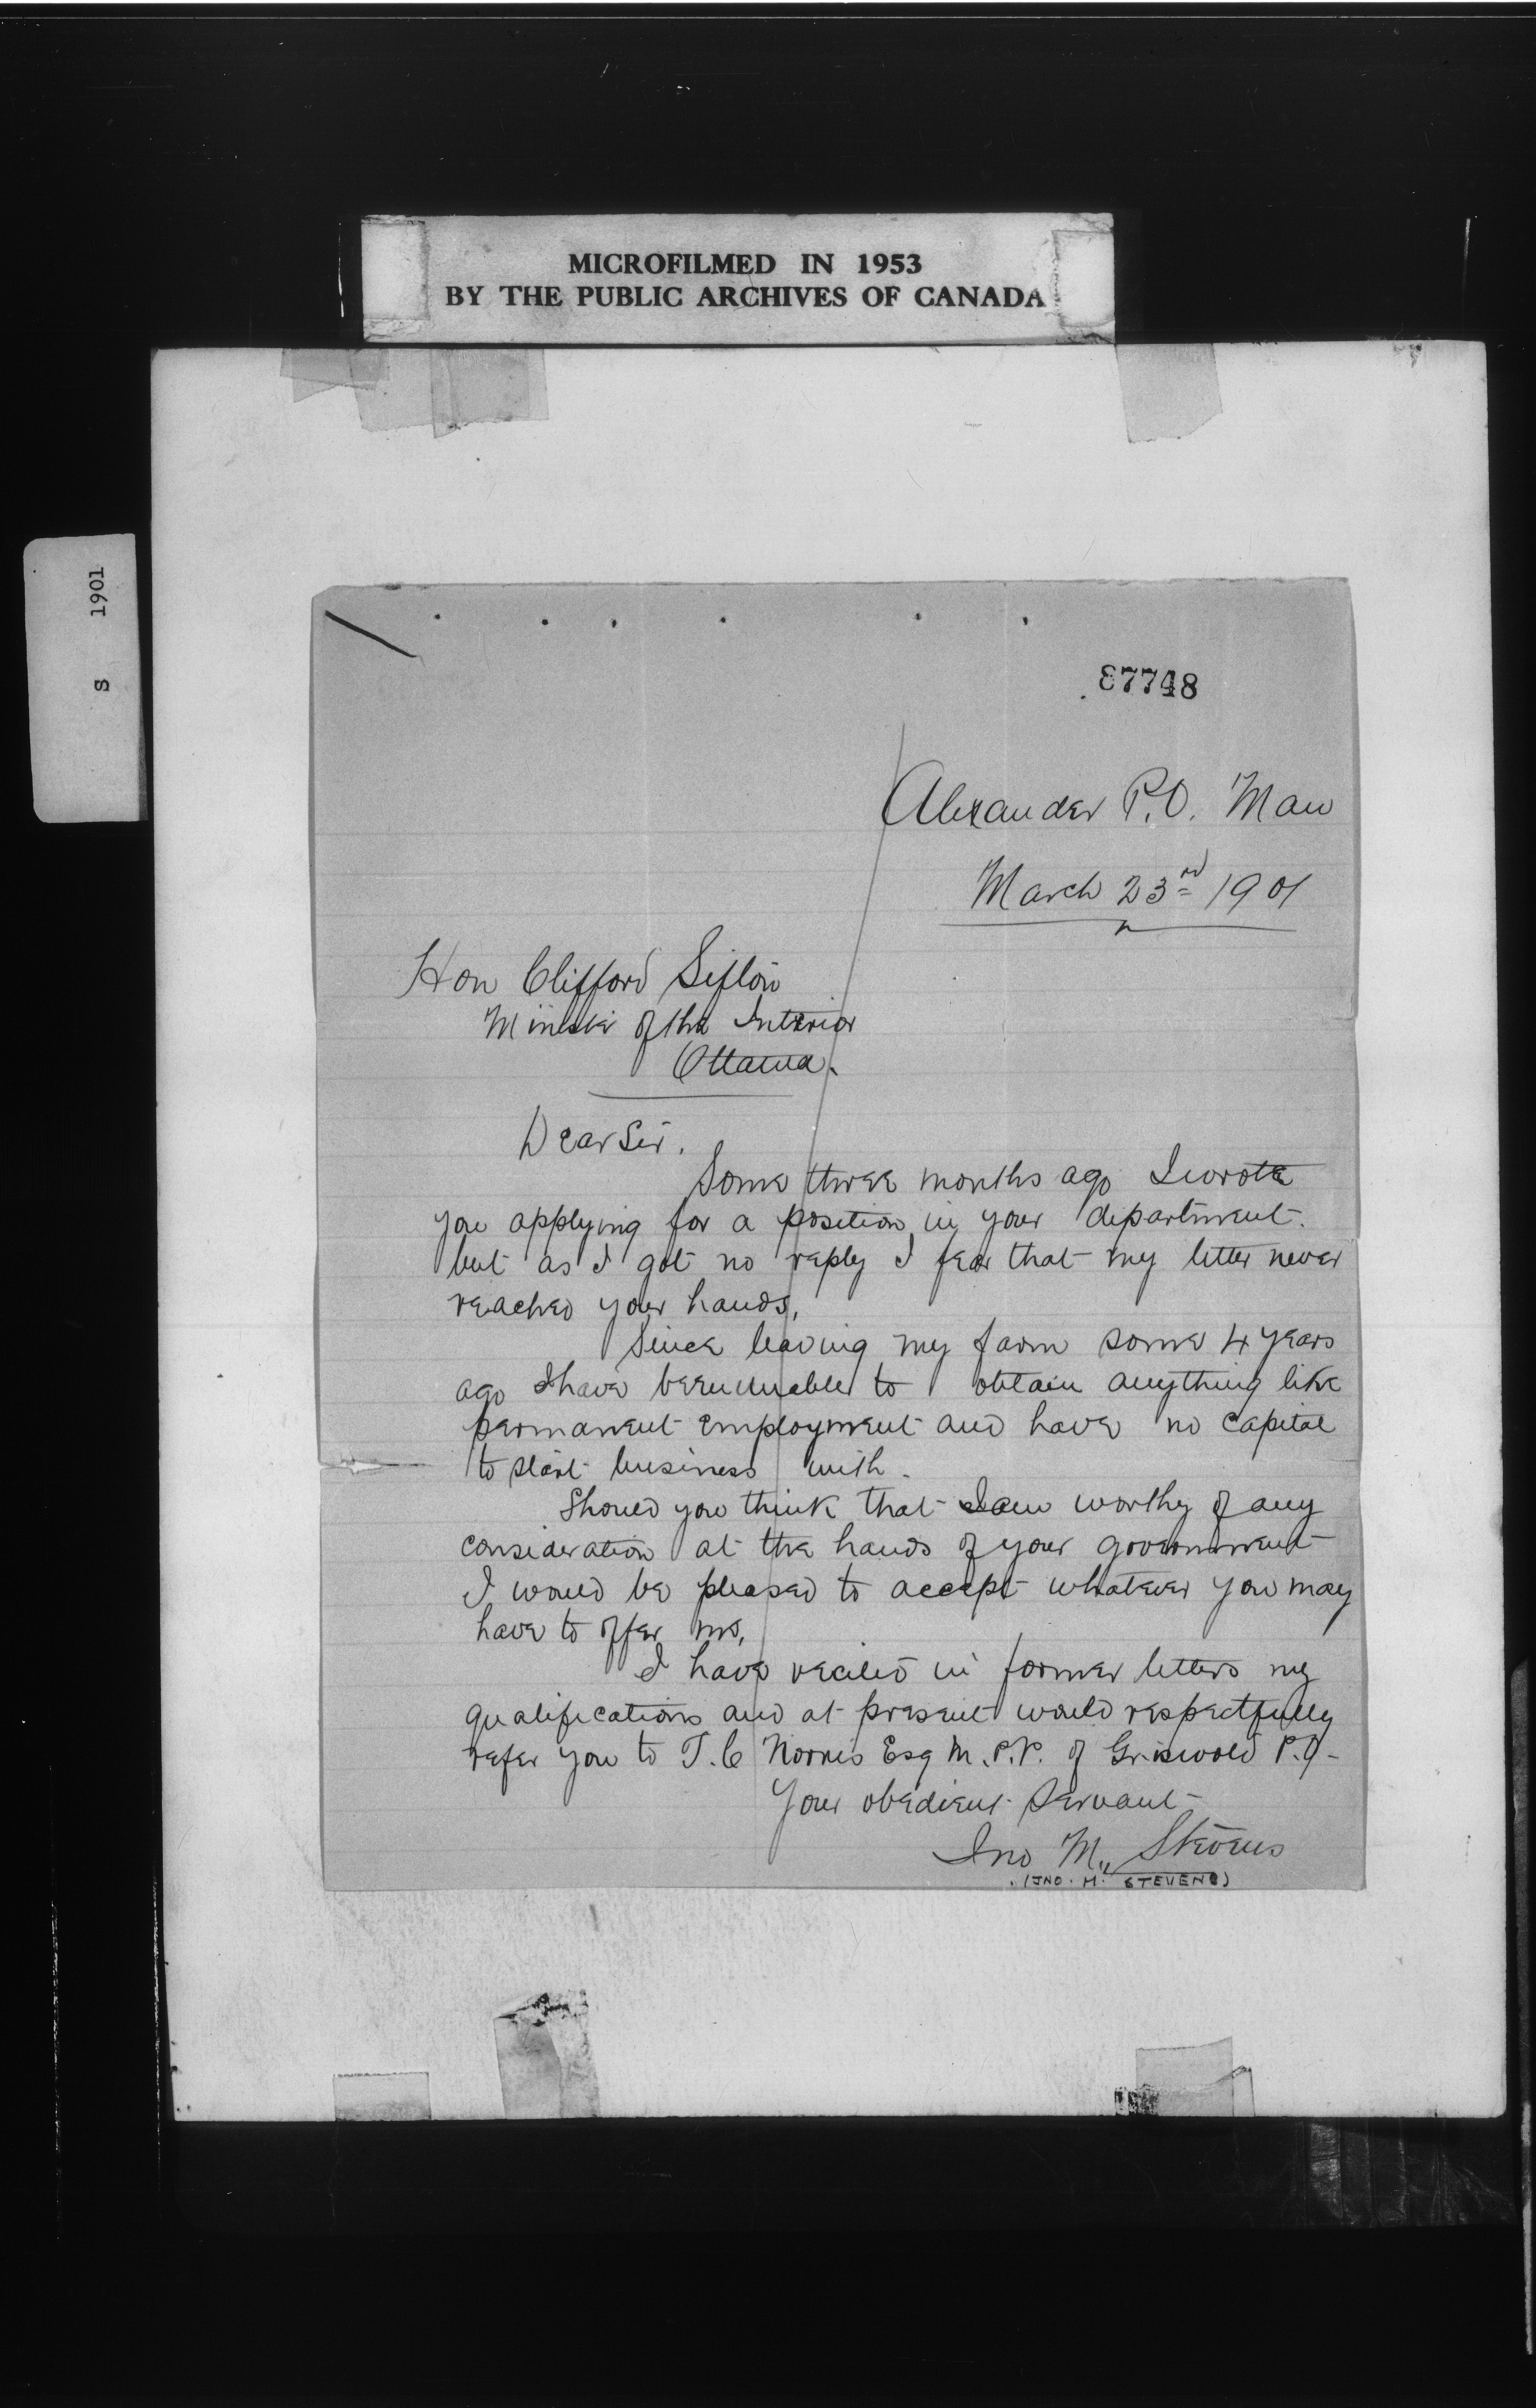 MICROFILMED IN 1953
BY THE PUBLIC ARCHIVES OF CANADA
S 1901
87748
Alexander P.O. Man
March 23rd 1901
Hon Clifford Sifton
Minister of the Interior
Ottawa.
Dear Sir.
Some three months ago I wrote
you applying for a position in your department.
but as I got no reply I fear that my letter never
reached your hands.
Since leaving my farm some 4 years
ago I have been unable to obtain anything like
permanent employment and have no capital
to start business with.
Should you think that I am worthy of any
consideration at the hands of your government
I would be pleased to accept whatever you may
have to offer me.
I have recited in former letters my
qualifications and at present would respectfully
refer you to T. C Norris Esq M.P.P. of Griswold P.O-
Your obedient Servant
Jno M. Stevens
(JNO. M. STEVENS)